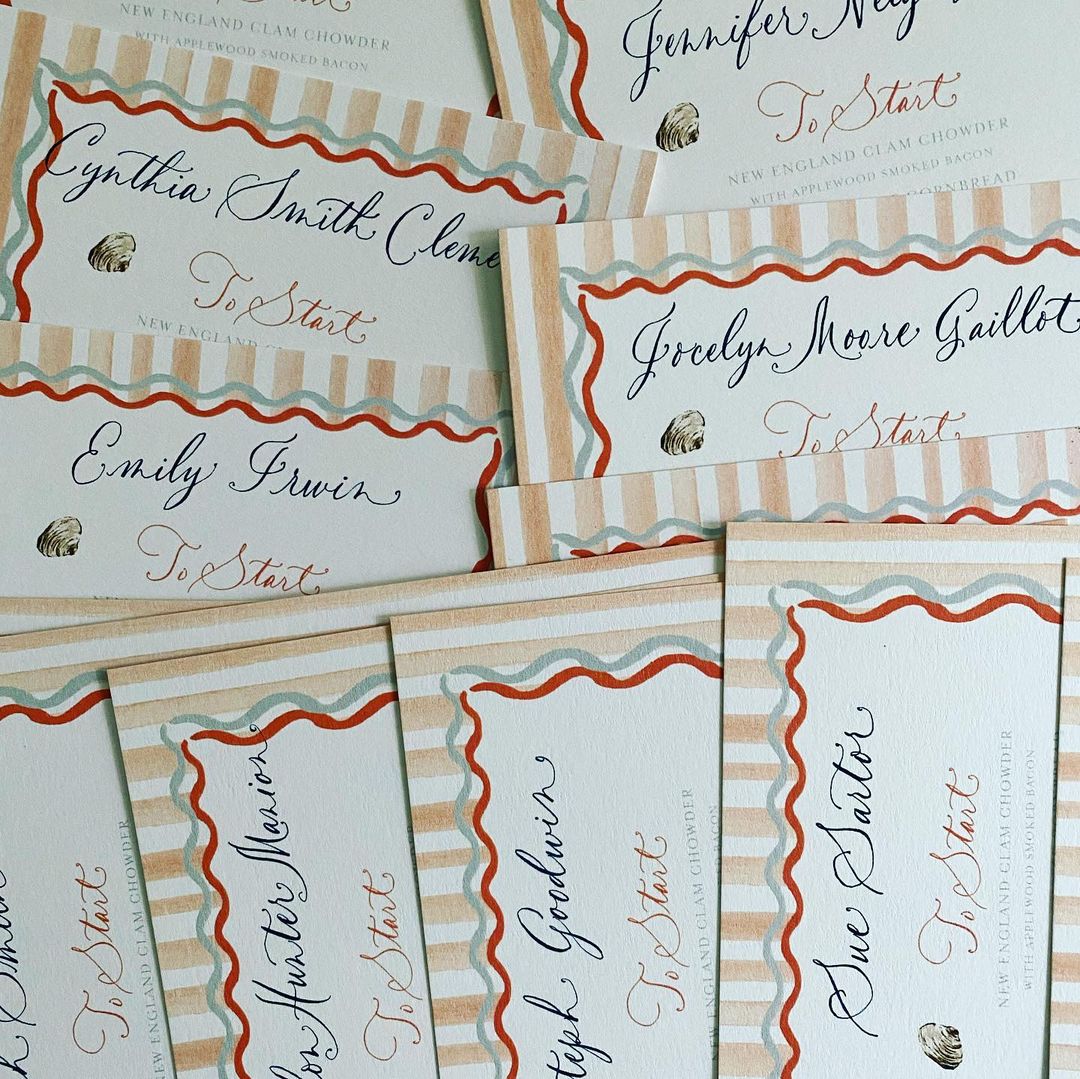 To Start
NEW ENGLAND CLAM CHOWDER
WITH APPLEWOOD SMOKED BACON
Jennifer
To Start
NEW ENGLAND CLAM CHOWDER
WITH APPLEWOOD SMOKED BACON
CORNBREAD
Cynthia Smith Cleme
To Start
NEW ENGLAND
Jocelyn Moore Gaillot
To Start
Emily Irwin
To Start
To Start
NEW ENGLAND CLAM CHOWDER
on Hunter Manion
To Start
teph Goodwin
To Start
NEW ENGLAND CLAM CHOWDER
Sue Sartor
To Start
NEW ENGLAND CLAM CHOWDER
WITH APPLEWOOD SMOKED BACON